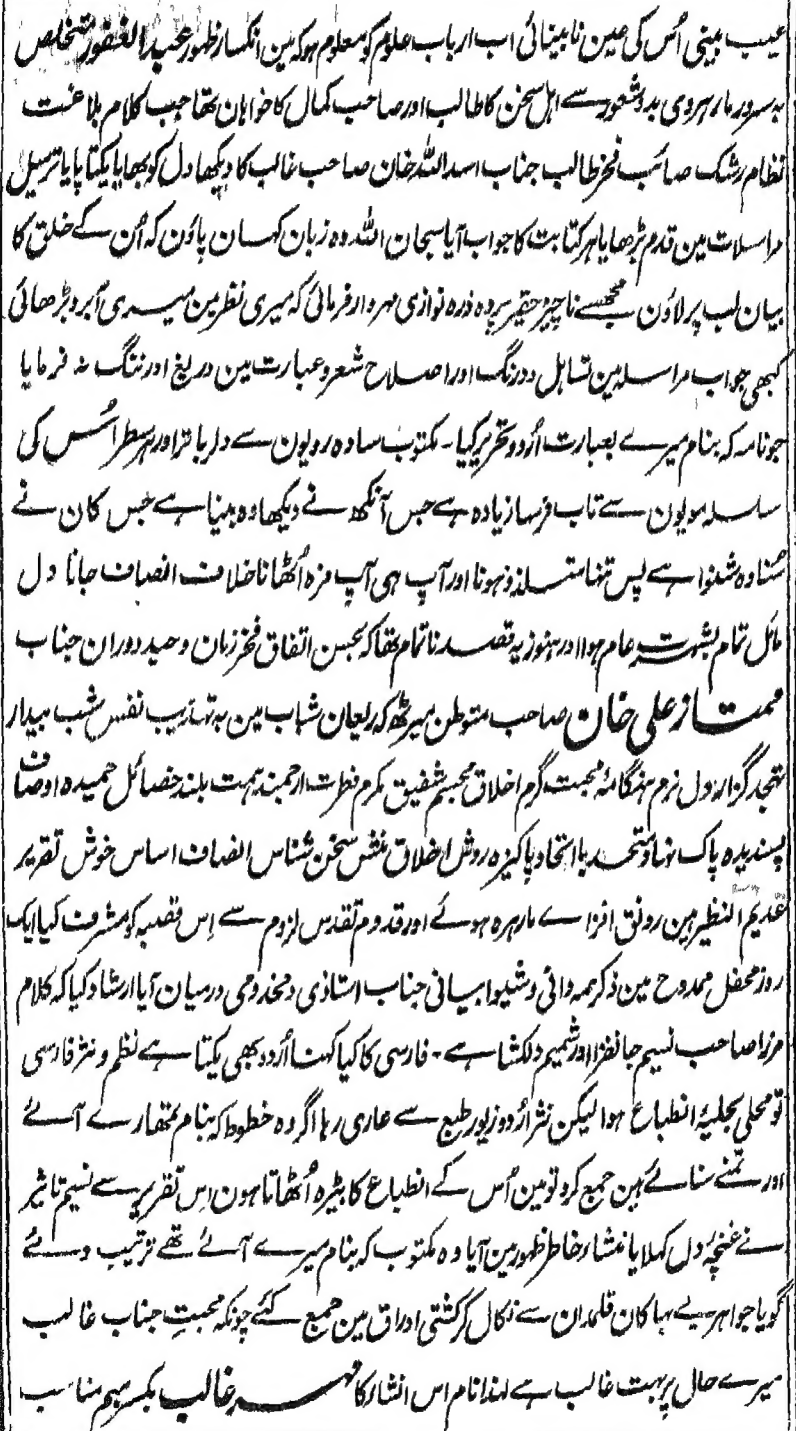 عیب بینی اُس کی عین نابینائی اب ارباب علوم کو معلوم ہو کہ مین انکسار ظہور عبد الغفور متخلص
بہ سرور مارہروی بدو شعور سے اہل سخن کا طالب اور صاحب کمال کا خواہان تھا جب کلام بلاغت
نظام رشک صائب فخر طالب جناب اسد اللہ خان صاحب غالب کا دیکھا دل کو بھایا یکتا پایا ترسیل
مراسلات مین قدم بڑھایا ہر کتابت کا جواب آیا سبحان اللہ وہ زبان کہان پاؤن کہ اُن کے خلق کا
بیان لب پر لاؤن مجھسے ناچیز حقیر پر وہ ذرہ نوازی مہروار فرمائی کہ میری نظر مین میری آبرو بڑھائی
کبھی جواب مراسلہ مین تساہل و درنگ اور اصلاح شعر و عبارت مین دریغ اور ننگ نہ فرمایا
جو نامہ کہ بنام میرے بعبارت اُردو تحریر کیا۔ مکتوب سادہ رویون سے دلرباتر اور ہر سطر اُس کی
سلسلہ مویون سے تاب فرسا زیادہ ہے جس آنکھ نے دیکھا وہ بینا ہے جس کان نے
سُنا وہ شنوا ہے پس تنہا متلذذ ہونا اور آپ ہی آپ مزہ اُٹھانا خلاف انصاف جانا دل
مائل تمام بشہرت عام ہوا اور ہنوز یہ قصد ناتمام تھا کہ بحسن اتفاق فخر زمان وحید دوران جناب
ممتاز علی خان صاحب متوطن میرٹھ کہ ریعان شباب مین بہ تہذیب نفس شب بیدار
تہجد گزار دل نرم ہنگامۂ محبت گرم اخلاق مجسم شفیق مکرم فطرت ارجمند ہمت بلند خصائل حمیدہ اوصاف
پسندیدہ پاک نہاد متحد بااتحاد پاکیزہ روش اخلاق منش سخن شناس انصاف اساس خوش تقریر
عدیم النظیر ہین رونق افزاے مارہرہ ہوئے اور قدوم تقدس لزوم سے اِس قصبہ کو مشرف کیا ایک
روز محفل ممدوح مین ذکر ہمہ دانی و شیوا بیانی جناب استاذی و مخدومی درمیان آیا ارشاد کیا کہ کلام
مرزا صاحب نسیم جانفزا اور شمیم دلکشا ہے۔ فارسی کا کیا کہنا اُردو بھی یکتا ہے نظم و نثر فارسی
تو محلی بحلیۂ انطباع ہوا لیکن نثر اُردو زیور طبع سے عاری رہا اگر وہ خطوط کہ بنام تمھارے آئے
اور تمنے سنائے ہین جمع کرو تو مین اُس کے انطباع کا بیڑہ اُٹھاتا ہون اِس تقریر سے نسیم تاثیر
نے غنچۂ دل کہلایا منشاء خاطر ظہور مین آیا وہ مکتوب کہ بنام میرے آئے تھے ترتیب دئے
گویا جواہر بے بہا کان قلمدان سے نکال کر کشتی اوراق مین جمع کئے چونکہ محبت جناب غالب
میرے حال پر بہت غالب ہے لہذا نام اس انشاء کا مہر غالب بکسر میم مناسب